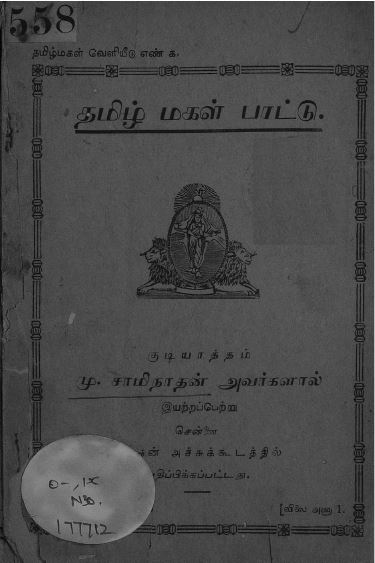 558
தமிழ்மகள் வெளியீடு எண் க.
தமிழ் மகள் பாட்டு.
குடியாத்தம்
மு. சாமிநாதன் அவர்களால்
இயற்றப்பெற்று
சென்னை
அச்சுக்கூடத்தில்
திப்பிக்கப்பட்டது.
[விலை அணா 1.
177712